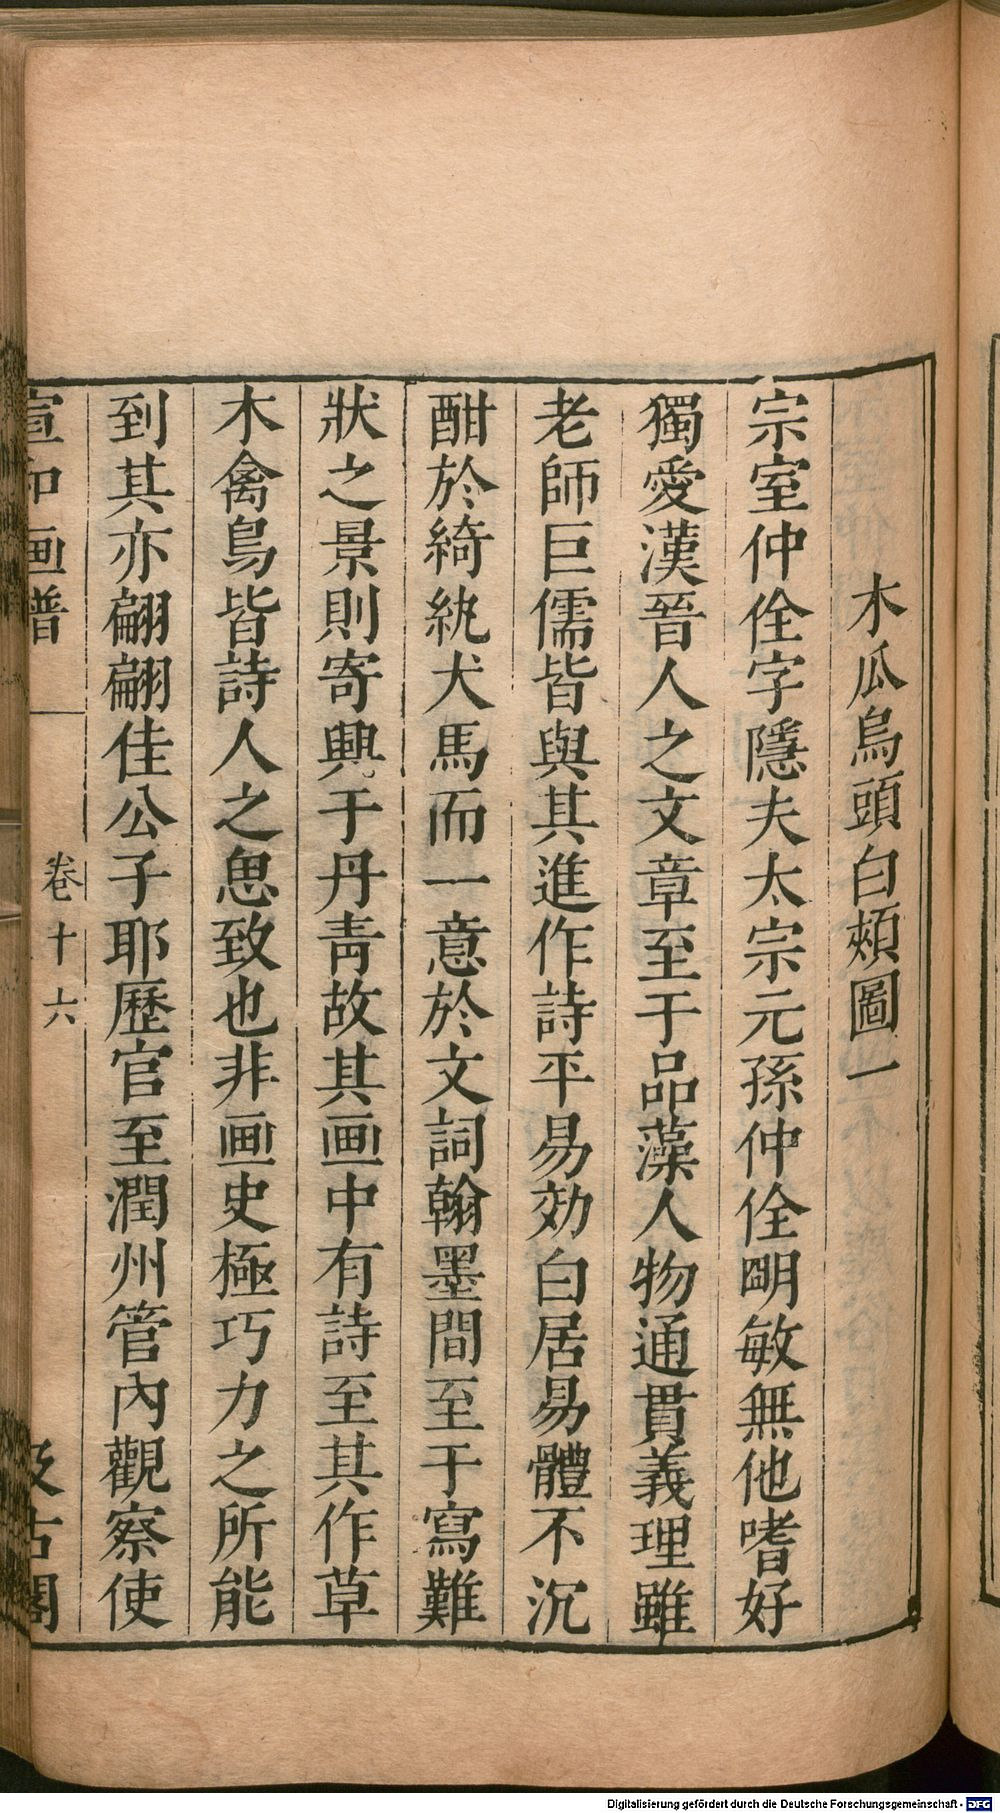 木瓜烏頭白頰圖一
宗室仲佺字隱夫太宗元孫仲佺明敏無他嗜好
獨愛漢晉人之文章至于品藻人物通貫義理雖
老師巨儒皆與其進作詩平易効白居易體不沉
酣於綺紈犬馬而一意於文詞翰墨間至于寫難
狀之景則寄興于丹青故其画中有詩至其作草
木禽鳥皆詩人之思致也非画史極巧力之所能
到其亦翩翩佳公子耶歷官至潤州管內觀察使
宣和画譜 卷十六 汲古閣
Digitalisierung gefördert durch die Deutsche Forschungsgemeinschaft - DFG